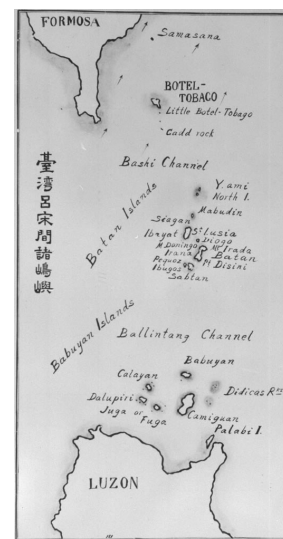 FORMOSA
Samasana
BOTEL-
TOBACO
Little Botel-Tobago
Gadd rock
Bashi Channel
臺湾呂宋間諸嶋嶼
Batan Islands
Y.ami
North I.
Mabudin
Siagan
Ibayat
Sta Lusia
Diogo
M. Domingo
Mt Irada
Irana
Batan
Pt Disini
Ibugos
Sabtan
Babuyan Islands
Ballintang Channel
Babuyan
Calayan
Didicas Rks
Dalupiri
Juga or
Fuga
Camiguan
Palabi I.
LUZON